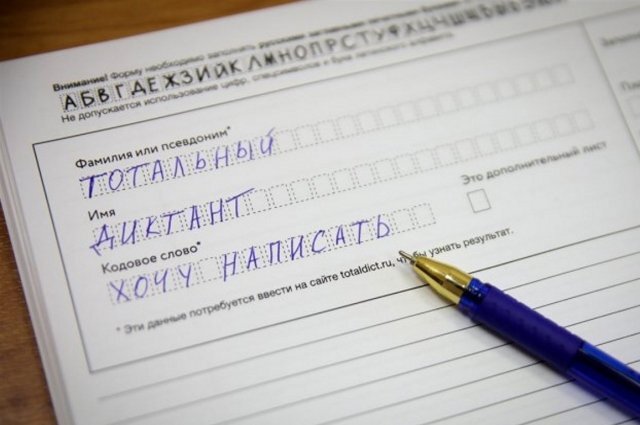 Внимание! Форму необходимо заполнить русскими заглавными печатными буквами
АБВГДЕЖЗИЙКЛМНОПРСТУФХЦЧШЩЪЫЬЭЮЯ
Не допускается использование цифр, спецсимволов и букв латинского алфавита.
Фамилия или псевдоним*
ТОТАЛЬНЫЙ
Имя
ДИКТАНТ
Кодовое слово*
Это дополнительный лист
ХОЧУ НАПИСАТЬ
* Эти данные потребуется ввести на сайте totaldict.ru, чтобы узнать результат.